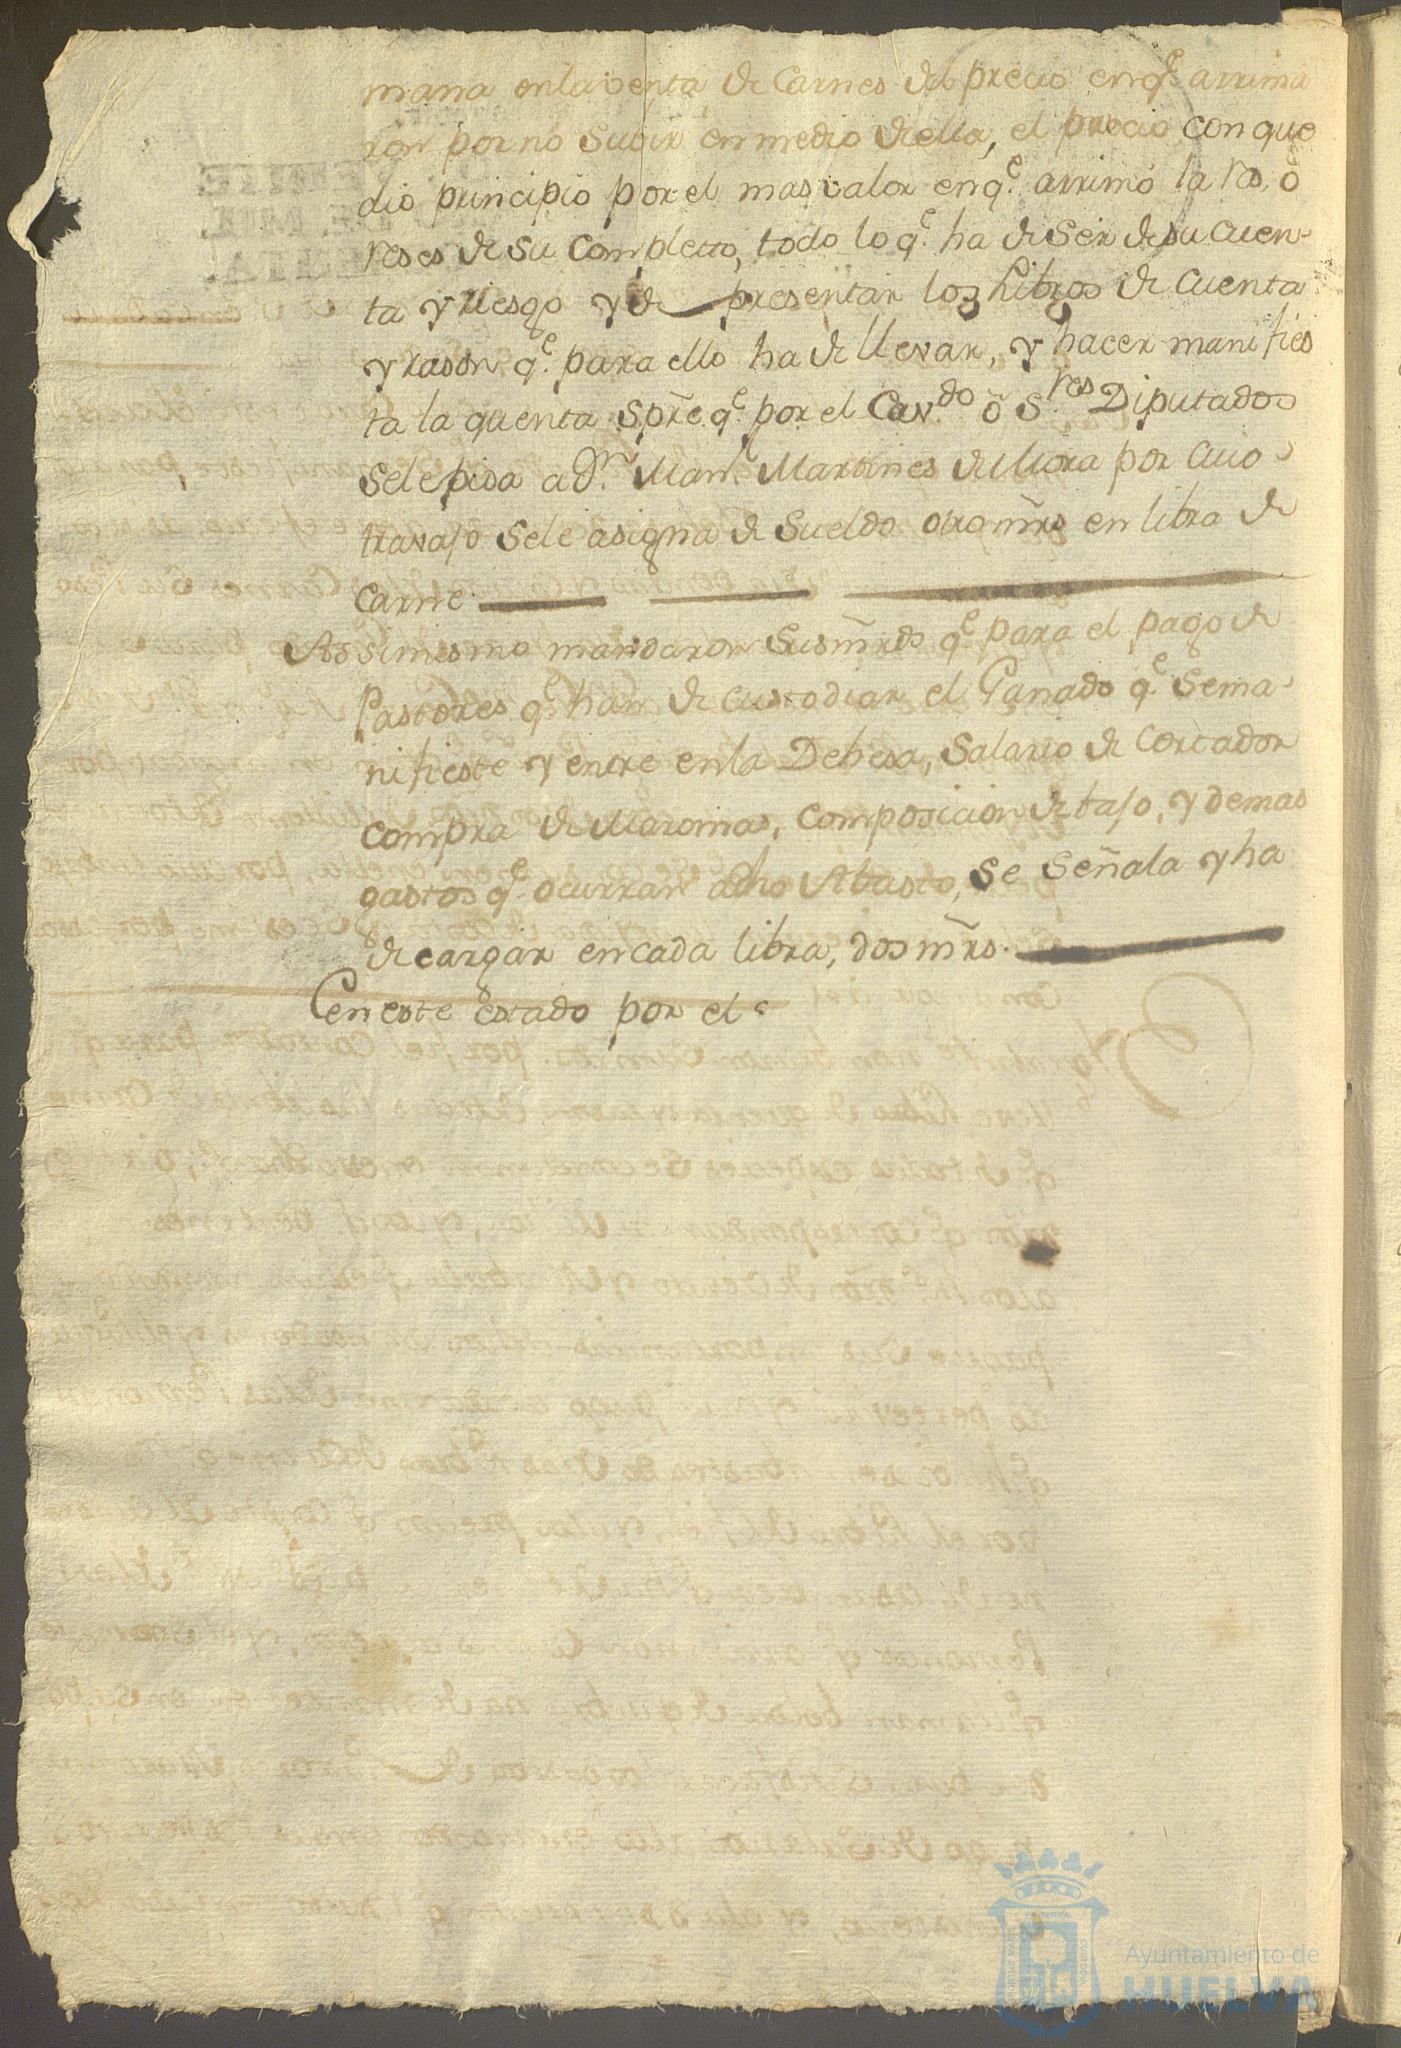 mana en la venta de Carnes del precio en q.e arrima
ron por no Subir en medio de ella, el precio con que
dio principio por el mas valor en q.e arrimó la res, ó
reses de su Completto, todo lo q.e ha de Ser de su Cuen-
ta y riesgo y de presentar los Libros de Cuenta
y rason q.e para ello ha de llevar, y hacer manifies
ta la quenta Spre. q.e por el Cav.do ó S.res Diputados
Sele pida a D.n Man.l Martines de Mora por cuio
travajo Sele asigna de Sueldo otro mrs en libra de
Carne.
Assimesmo mandaron Sus mrds q.e para el pago de
Pastores q.e han de custodiar el Ganado q.e Sema
nifieste y entre en la Dehesa, Salario de Cortador
compra de Maromas, composicion de tajo, y demas
gastos q.e ocurran a dho Abasto, se Señala y ha
de cargar en cada libra, dos mrs.
en este estado por el
Ayuntamiento de
HUELVA